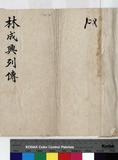 林成興列傳
KODAK Color Control Patches